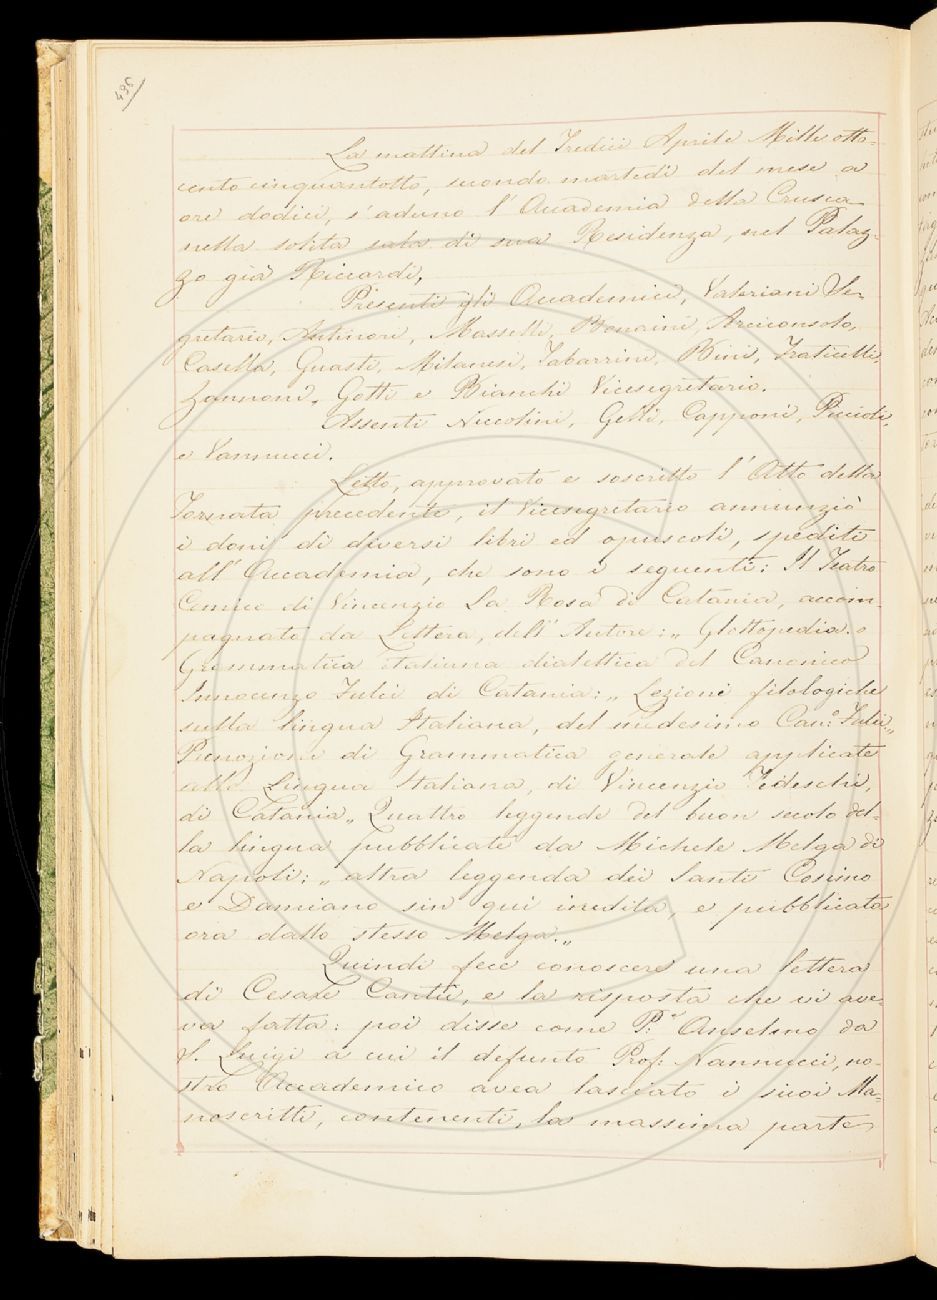 495
La mattina del Tredici Aprile Mille otto-
cento cinquantotto, secondo martedì del mese a
ore dodici, s'adunò l'Accademia della Crusca
nella solita sala di sua Residenza, nel Palaz-
zo già Riccardi,
Presenti gli Accademici, Valeriani Se-
gretario, Antinori, Masselli, Bonaini, Arciconsolo,
Casella, Guasti, Milanesi, Tabarrini, Bini, Fraticelli,
Zannoni, Gotti e Bianchi Vicesegretario.
Assenti Niccolini, Gelli, Capponi, Piccioli,
e Vannucci.
Letto, approvato e soscritto l'Atto della
Tornata precedente, il Vicesegretario annunziò
i doni di diversi libri ed opuscoli, spediti
all'Accademia, che sono i seguenti: Il Teatro
Comico di Vincenzio La Rosa di Catania, accom-
pagnato da Lettera, dell'Autore: „ Glottopedia o
Grammatica italiana dialettica del Canonico
Innocenzo Fulci di Catania: „ Lezioni filologiche
sulla lingua Italiana, del medesimo Can.º Fulci „
Prenozioni di Grammatica generale applicate
alla Lingua Italiana, di Vincenzio Tedeschi,
di Catania „ Quattro leggende del buon secolo del-
la lingua pubblicate da Michele Melga di
Napoli: „ altra leggenda dei Santi Cosimo
e Damiano sin qui inedita, e pubblicata
ora dallo stesso Melga. „
Quindi fece conoscere una lettera
di Cesare Cantù, e la risposta che vi ave-
va fatta: poi disse come P.ͤ Anselmo da
S. Luigi a cui il defunto Prof: Nannucci, no-
stro Accademico avea lasciato i suoi Ma-
noscritti, contenenti, la massima parte